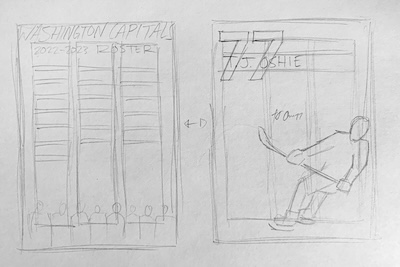 WASHINGTON CAPITALS
2022-2023 ROSTER
77
T.J. OSHIE